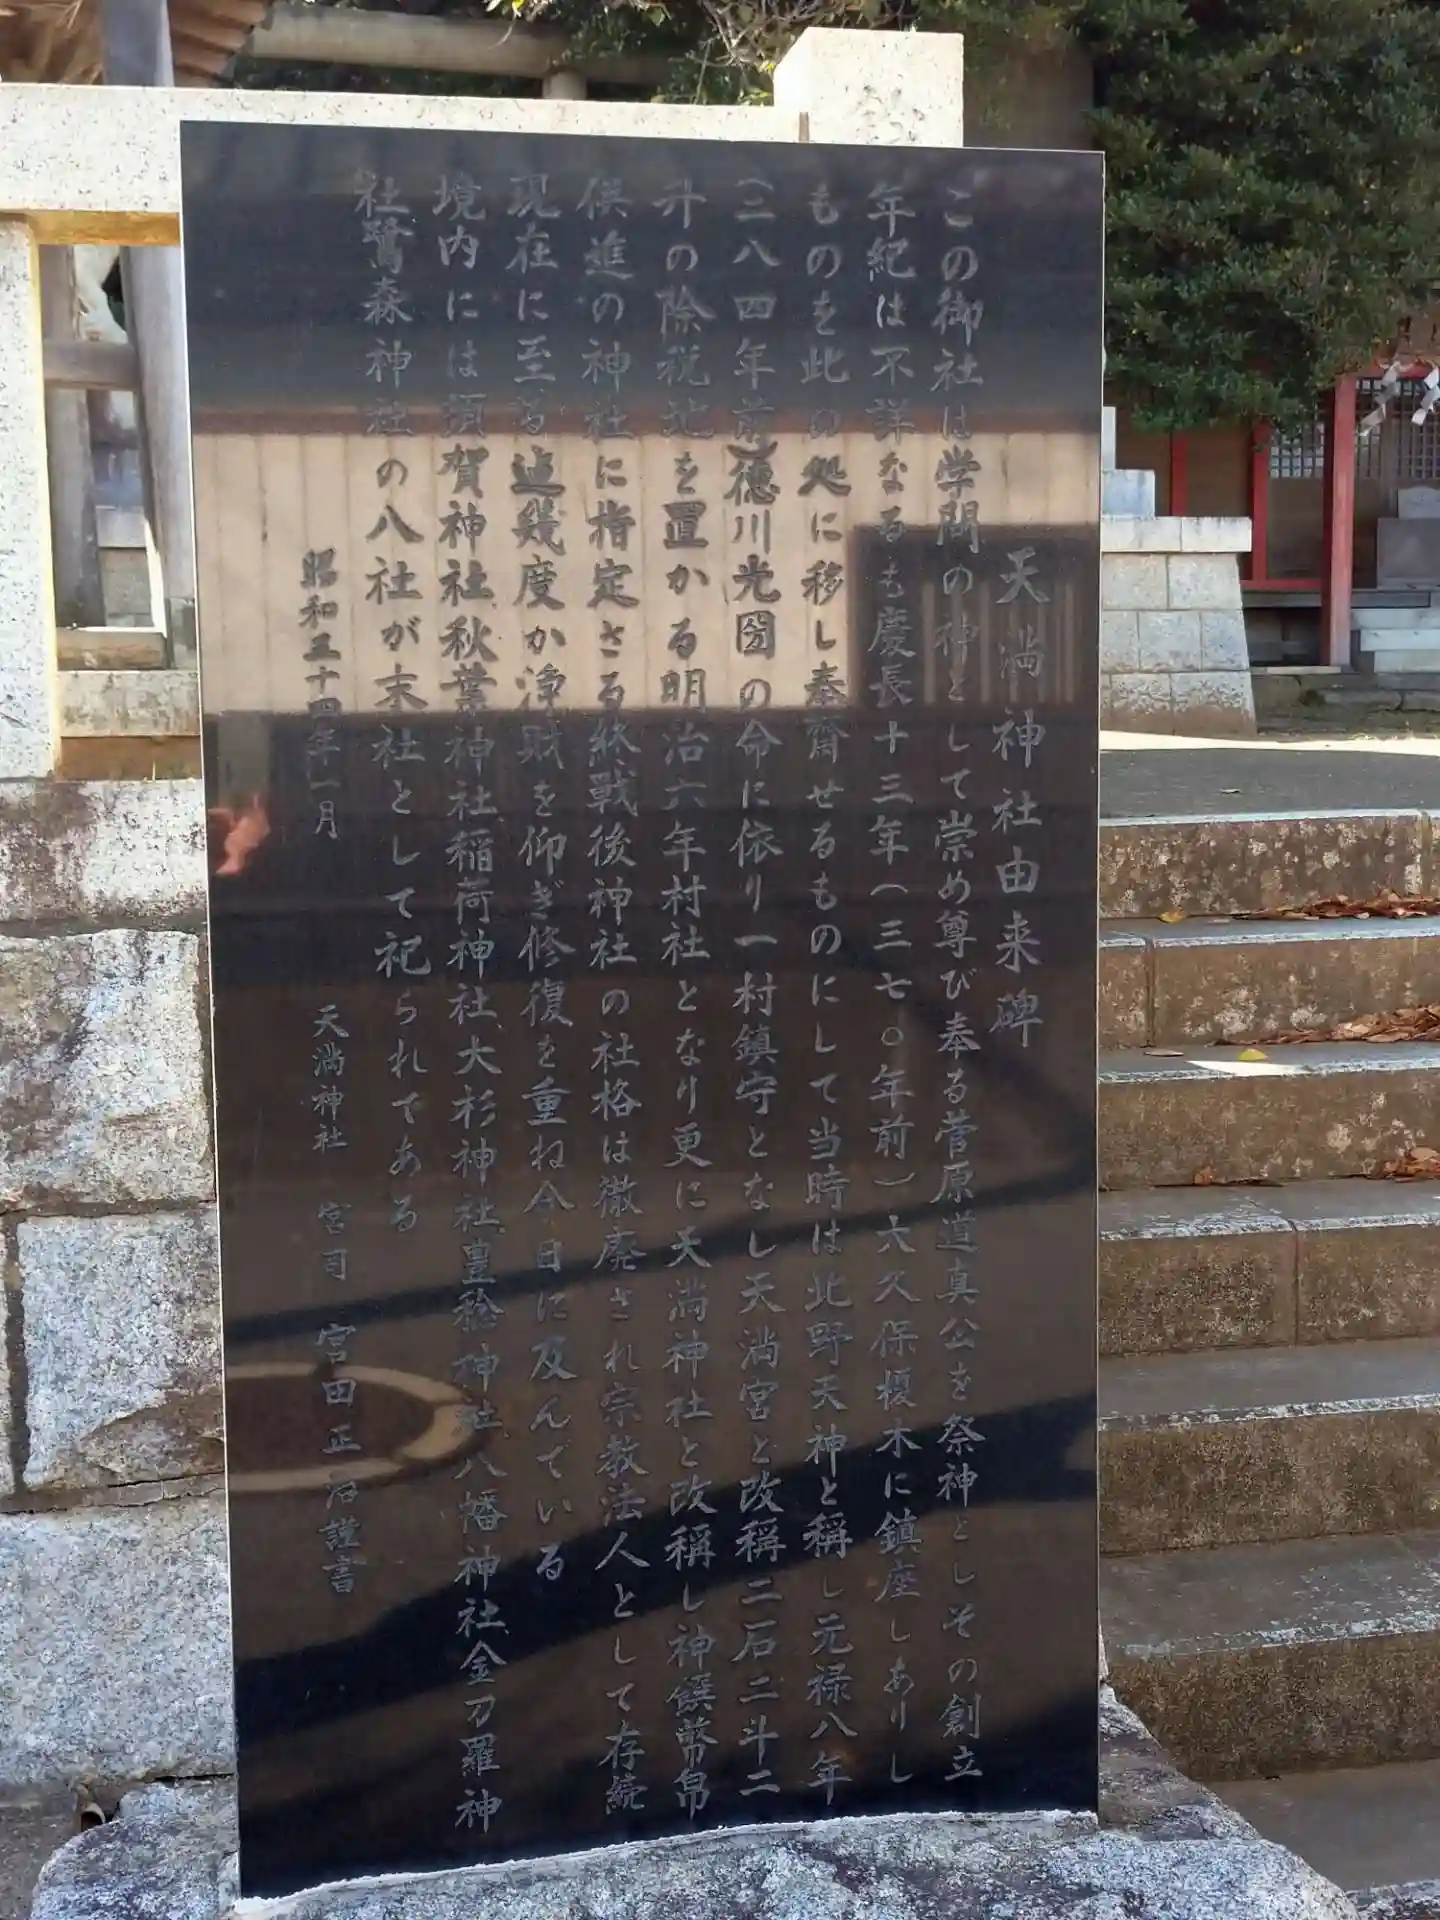 天満神社由来碑
この御社は学問の神として崇め尊び奉る菅原道真公を祭神としその創立
年紀は不詳なるも慶長十三年(三七〇年前)大久保榎木に鎮座しありし
ものを此の処に移し奉齋せるものにして当時は北野天神と稱し元禄八年
(三八四年前)徳川光圀の命に依り一村鎮守となし天満宮と改稱二石二斗二
升の除税地を置かる明治六年村社となり更に天満神社と改稱し神饌幣帛
供進の神社に指定さる終戦後神社の社格は撤廃され宗教法人として存続
現在に至る 幾度か浄財を仰ぎ修復を重ね今日に及んでいる
境内には須賀神社秋葉神社稲荷神社大杉神社豊 神社八幡神社金刀羅神
社鷺森神社の八社が末社として祀られてある
昭和五十四年一月
天満神社 宮司 宮田正 謹書